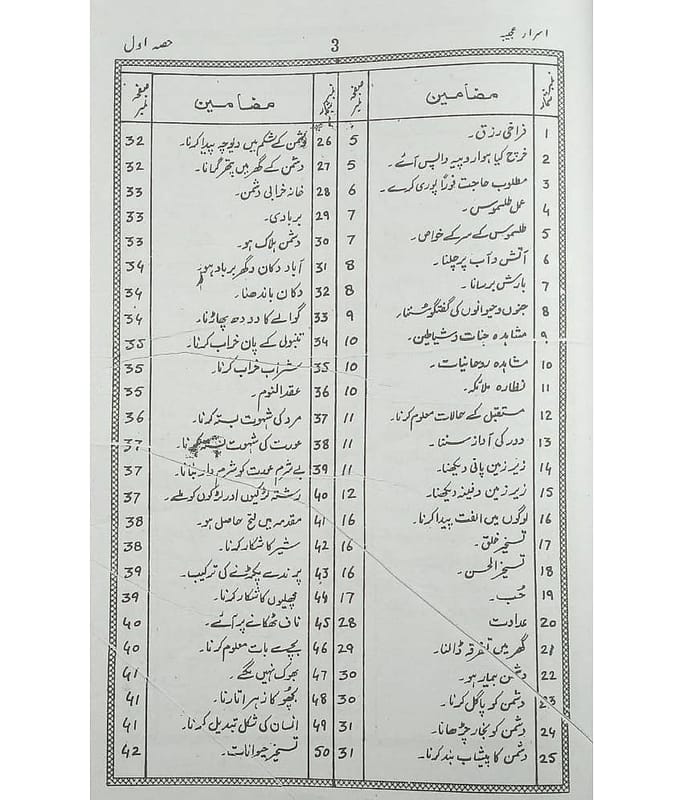 اسرار عجیبہ
3
حصہ اول
نمبر شمار مضامین صفحہ نمبر
1 فراخی رزق۔ 5
2 خرچ کیا ہوا روپیہ واپس آئے۔ 5
3 مطلوب حاجت فوراً پوری کرے۔ 6
4 عمل طلسموس۔ 7
5 طلسموس کے سر کے خواص۔ 7
6 آتش و آب پر چلنا۔ 8
7 بارش برسانا۔ 8
8 جنوں و حیوانوں کی گفتگو سننا۔ 9
9 مشاہدہ جنات و شیاطین۔ 10
10 مشاہدہ روحانیات۔ 10
11 نظارہ ملائکہ۔ 10
12 مستقبل کے حالات معلوم کرنا۔ 11
13 دور کی آواز سننا۔ 11
14 زیر زمین پانی دیکھنا۔ 11
15 زیر زمین دفینہ دیکھنا۔ 12
16 لوگوں میں الفت پیدا کرنا۔ 16
17 تسخیر خلق۔ 16
18 تسخیر الحسن۔ 16
19 حُب۔ 17
20 عداوت 28
21 گھر میں تفرقہ ڈالنا۔ 29
22 دشمن بیمار ہو۔ 30
23 دشمن کو پاگل کرنا۔ 30
24 دشمن کو بخار چڑھانا۔ 31
25 دشمن کا پیشاب بند کرنا۔ 31
نمبر شمار مضامین صفحہ نمبر
26 دشمن کے شکم میں پیدا کرنا۔ 32
27 دشمن کے گھر میں پتھر گرانا۔ 32
28 خانہ خرابی دشمن۔ 33
29 بربادی۔ 33
30 دشمن ہلاک ہو۔ 33
31 آباد دکان و گھر برباد ہو۔ 34
32 دکان باندھنا۔ 34
33 گوالے کا دودھ پھاڑنا۔ 34
34 تنبولی کے پان خراب کرنا۔ 35
35 شراب خراب کرنا۔ 35
36 عقد النوم۔ 35
37 مرد کی شہوت بستہ کرنا۔ 36
38 عورت کی شہوت بستہ کرنا۔ 37
39 بے شرم عورت کو شرم دار بنانا۔ 37
40 رشتہ لڑکیوں اور لڑکوں کو ملے۔ 37
41 مقدمہ میں فتح حاصل ہو۔ 38
42 شیر کا شکار کرنا۔ 38
43 پرندے پکڑنے کی ترکیب۔ 39
44 مچھلیوں کا شکار کرنا۔ 39
45 ناف ٹھکانے پر آئے۔ 40
46 بچے سے بات معلوم کرنا۔ 40
47 بھوک نہیں لگے۔ 41
48 بچھو کا زہر اتارنا۔ 41
49 انسان کی شکل تبدیل کرنا۔ 41
50 تسخیر حیوانات۔ 42